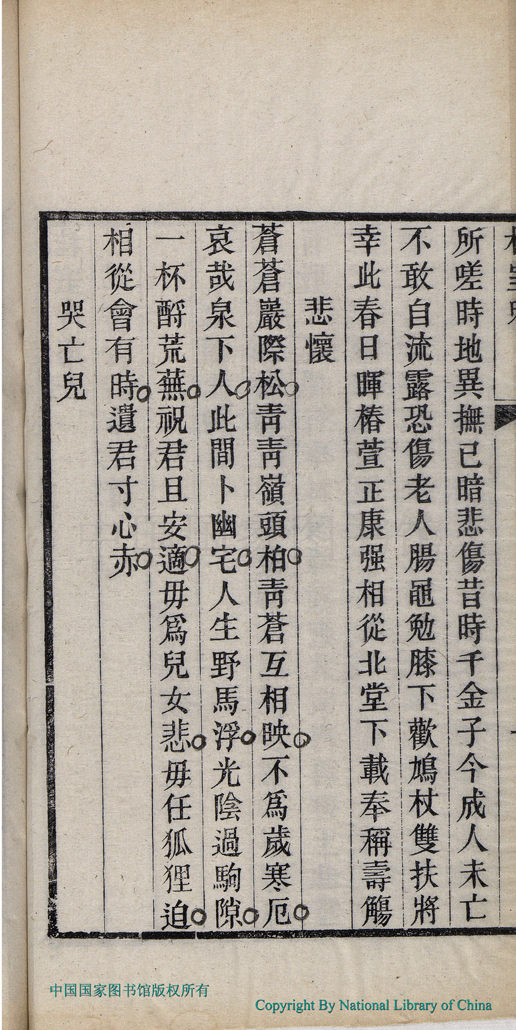 所嗟時地異撫已暗悲傷昔時千金子今成人未亡
不敢自流露恐傷老人腸黽勉膝下歡鳩杖雙扶將
幸此春日暉椿萱正康强相從北堂下載奉稱壽觴
悲懷
蒼蒼巖際松青青嶺頭柏青蒼互相映不爲歲寒厄
哀哉泉下人此間卜幽宅人生野馬浮光陰過駒隙
一杯酹荒蕪祝君且安適毋爲兒女悲毋任狐狸迫
相從會有時遺君寸心赤
哭亡兒
中国国家图书馆版权所有
Copyright By National Library of China